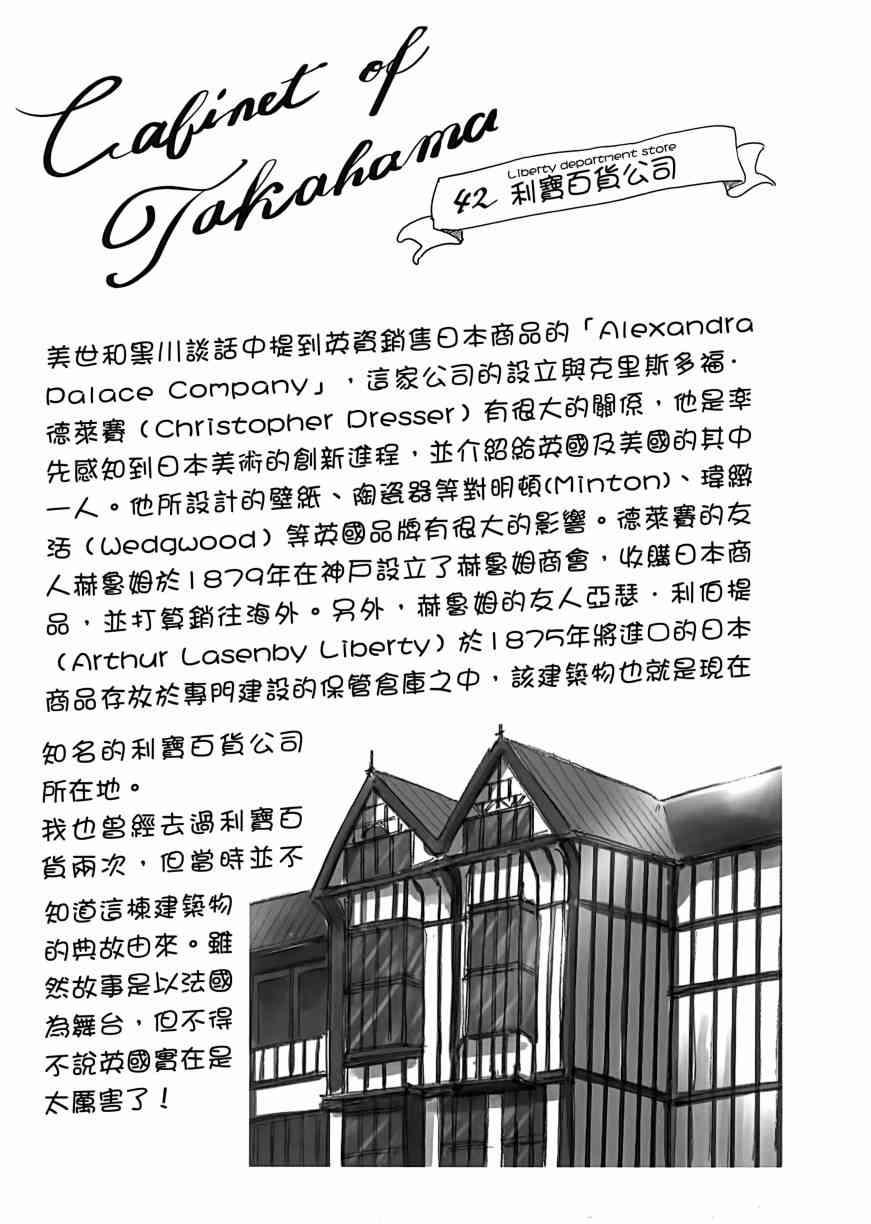 Cabinet of
Takahama
Liberty department store
42 利寶百貨公司
美世和黑川談話中提到英資銷售日本商品的「Alexandra
Palace Company」，這家公司的設立與克里斯多福·
德萊賽（Christopher Dresser）有很大的關係，他是率
先感知到日本美術的創新進程，並介紹給英國及美國的其中
一人。他所設計的壁紙、陶瓷器等對明頓(Minton)、瑋緻
活（Wedgwood）等英國品牌有很大的影響。德萊賽的友
人赫魯姆於1879年在神戶設立了赫魯姆商會，收購日本商
品，並打算銷往海外。另外，赫魯姆的友人亞瑟·利伯提
（Arthur Lasenby Liberty）於1875年將進口的日本
商品存放於專門建設的保管倉庫之中，該建築物也就是現在
知名的利寶百貨公司
所在地。
我也曾經去過利寶百
貨兩次，但當時並不
知道這棟建築物
的典故由來。雖
然故事是以法國
為舞台，但不得
不說英國實在是
太厲害了！